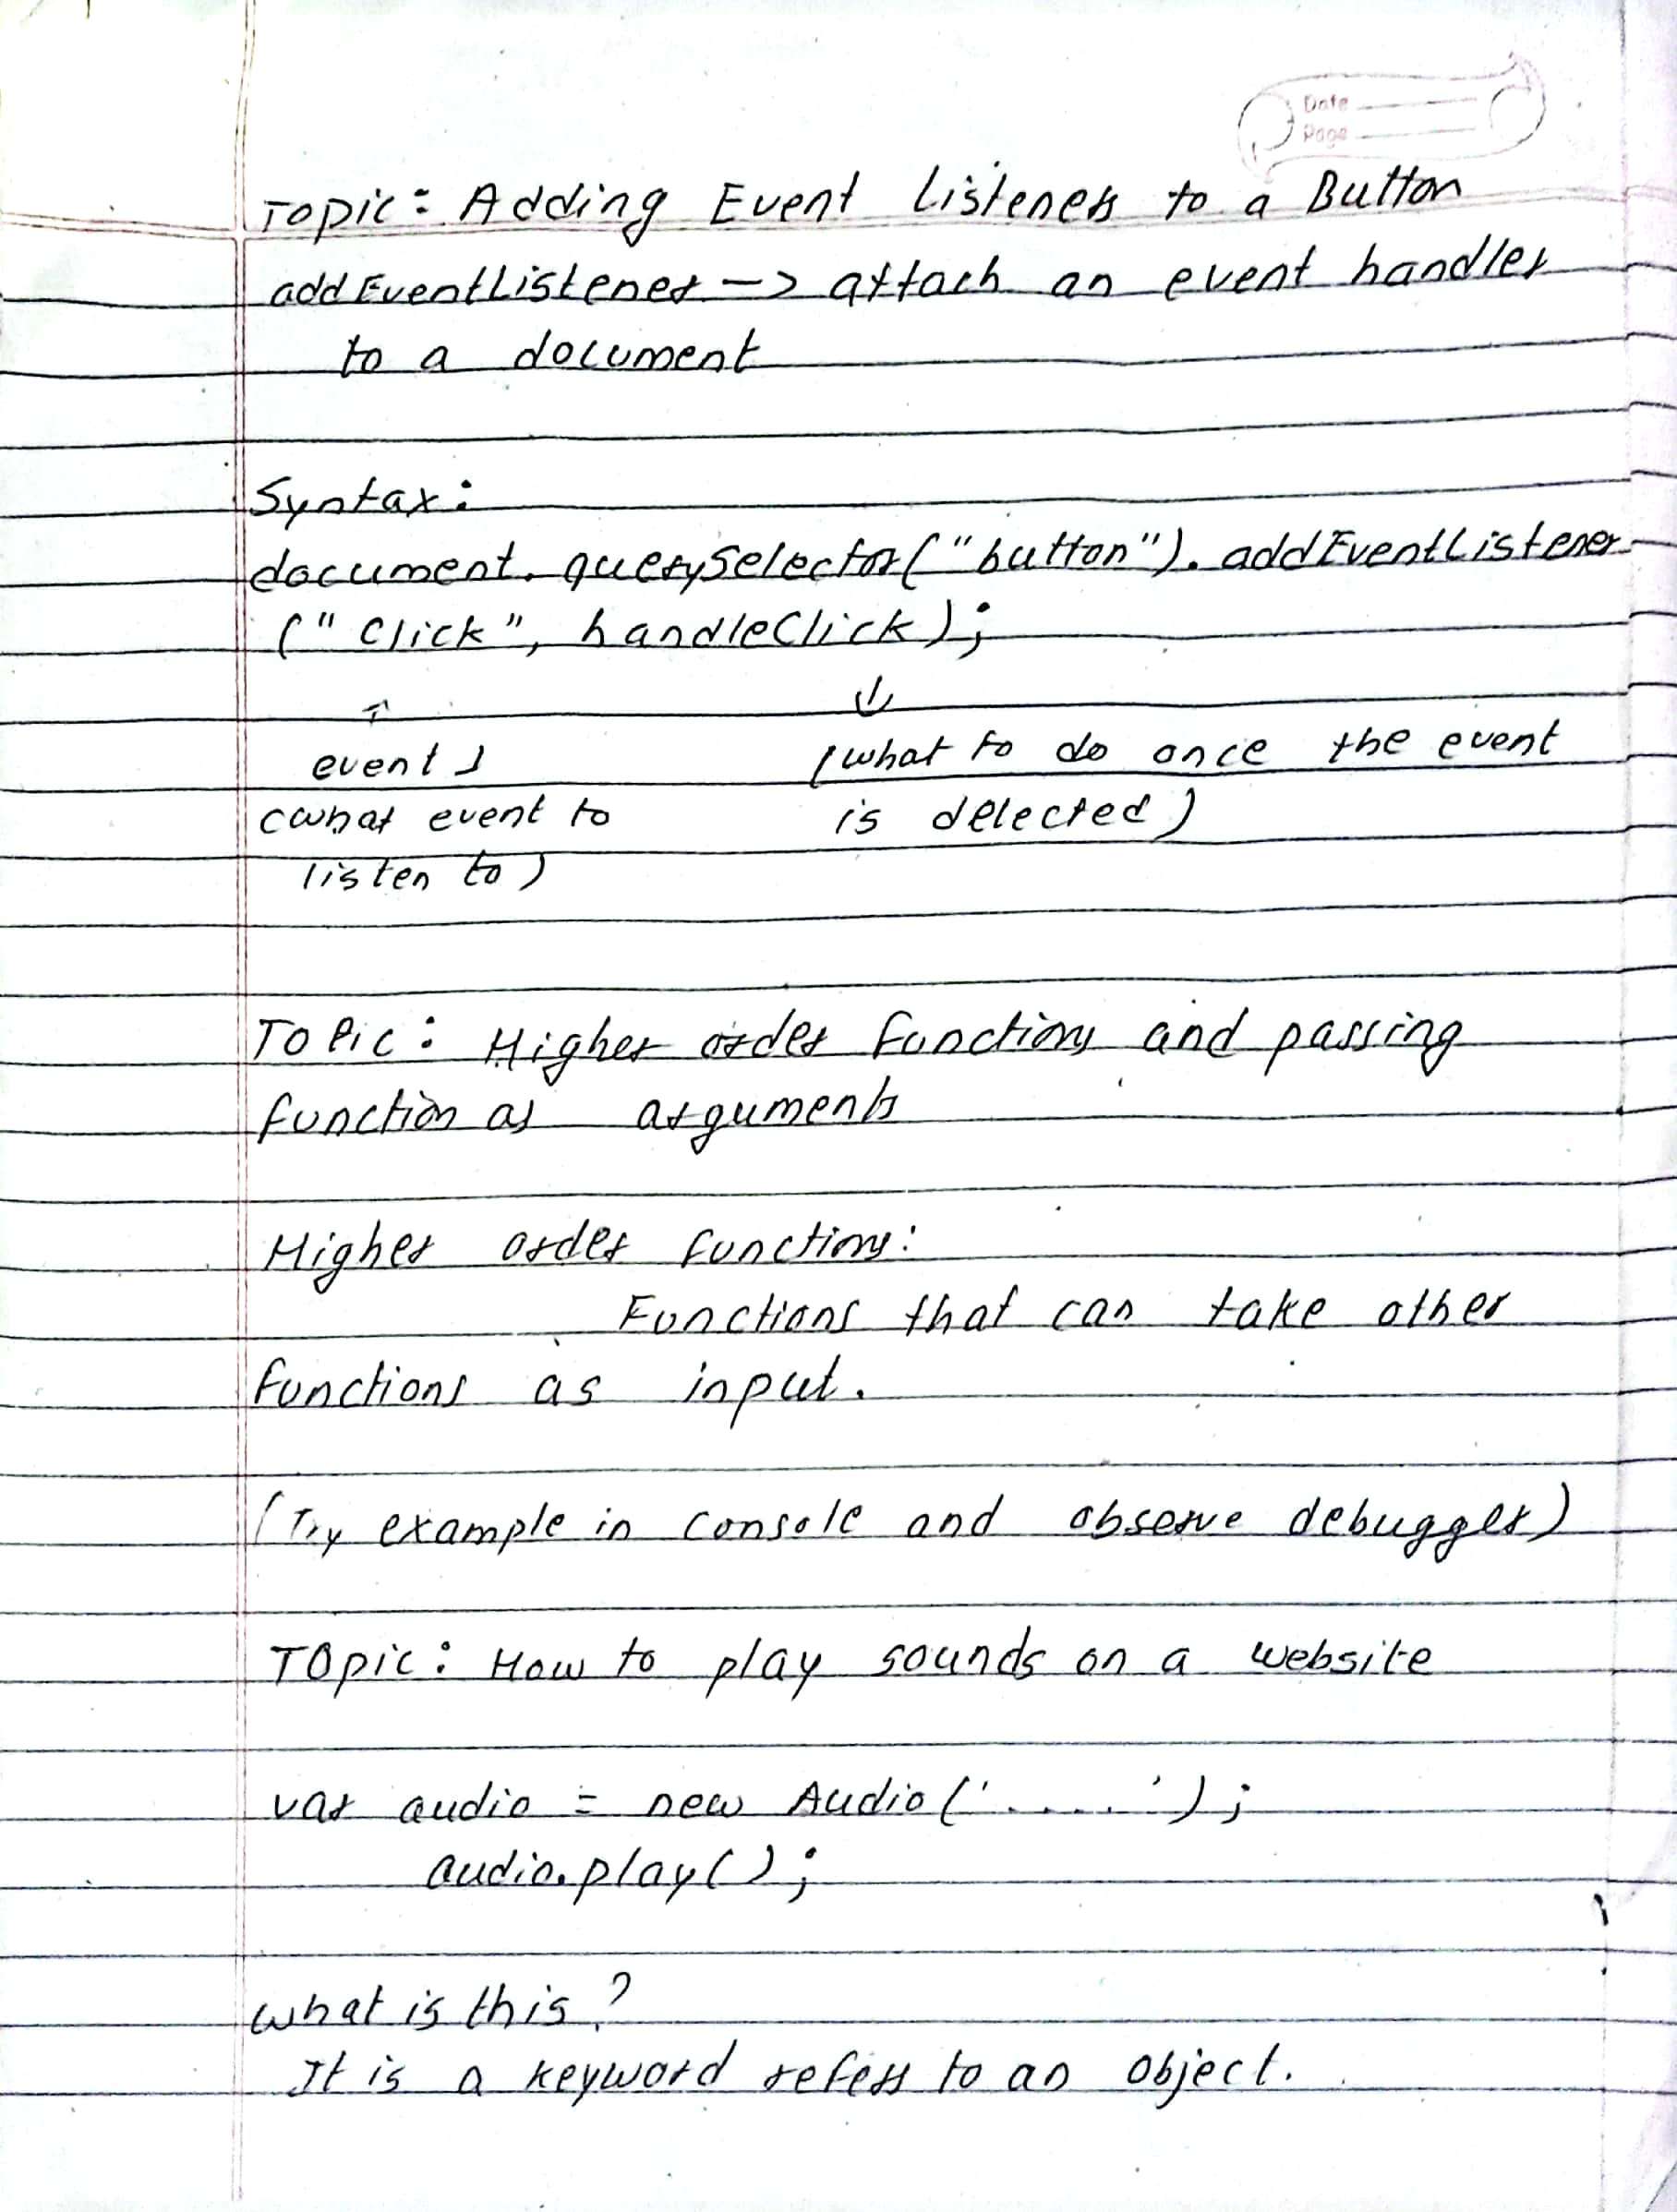 Date
Page
Topic: Adding Event Listeners to a Button
addEventListener -> attach an event handler
to a document
Syntax:
document.querySelector("button").addEventListener
("click", handleClick);
↑ ↓
event) (what to do once the event
(what event to is detected)
listen to)
Topic: Higher order functions and passing
function as arguments
Higher order functions:
Functions that can take other
functions as input.
(Try example in console and observe debugger)
Topic: How to play sounds on a website
var audio = new Audio('.....');
audio.play();
what is this?
It is a keyword refers to an object.